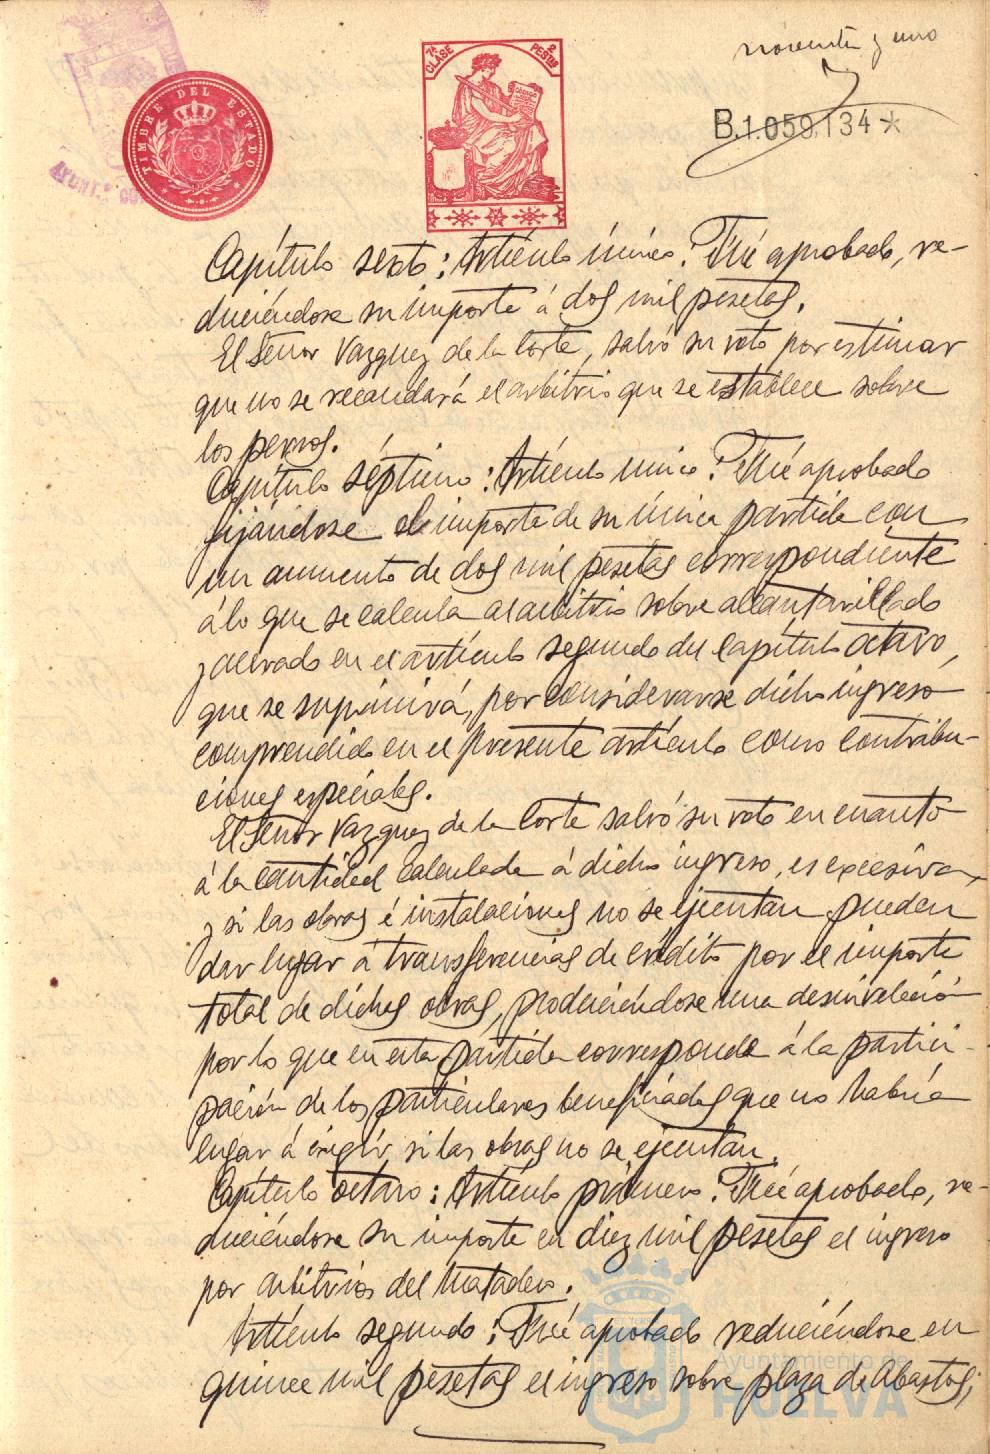 noventa y uno
TIMBRE DEL ESTADO
7ª CLASE
2 PESETAS
B.1.059.134*
AYUNT.
Capítulo sexto: Artículo único: Fué aprobado, re-
duciéndose su importe á dos mil pesetas.
El Señor Vazquez de la Corte, salvó su voto por estimar
que no se recaudará el arbitrio que se establece sobre
los perros.
Capítulo séptimo: Artículo único: Fué aprobado
fijándose el importe de su única partida con
un aumento de dos mil pesetas correspondiente
á lo que se calcula al arbitrio sobre alcantarillado
y acerado en el artículo segundo del capítulo octavo,
que se suprimirá, por considerarse dicho ingreso
comprendido en el presente artículo como contribu-
ciones especiales.
El Señor Vazquez de la Corte salvó su voto en cuanto
á la cantidad calculada á dicho ingreso, es excesiva,
y si las obras é instalaciones no se ejecutan pueden
dar lugar á transferencias de crédito por el importe
total de dichas obras, produciéndose una desnivelación
por lo que en esta partida corresponde á la partici-
pación de los particulares beneficiados que no habría
lugar á exigir si las obras no se ejecutan.
Capítulo octavo: Artículo primero: Fué aprobado, re-
duciéndose su importe en diez mil pesetas el ingreso
por arbitrios del Matadero.
Artículo segundo: Fué aprobado reduciéndose en
quince mil pesetas el ingreso sobre plaza de Abastos;
Ayuntamiento de
HUELVA